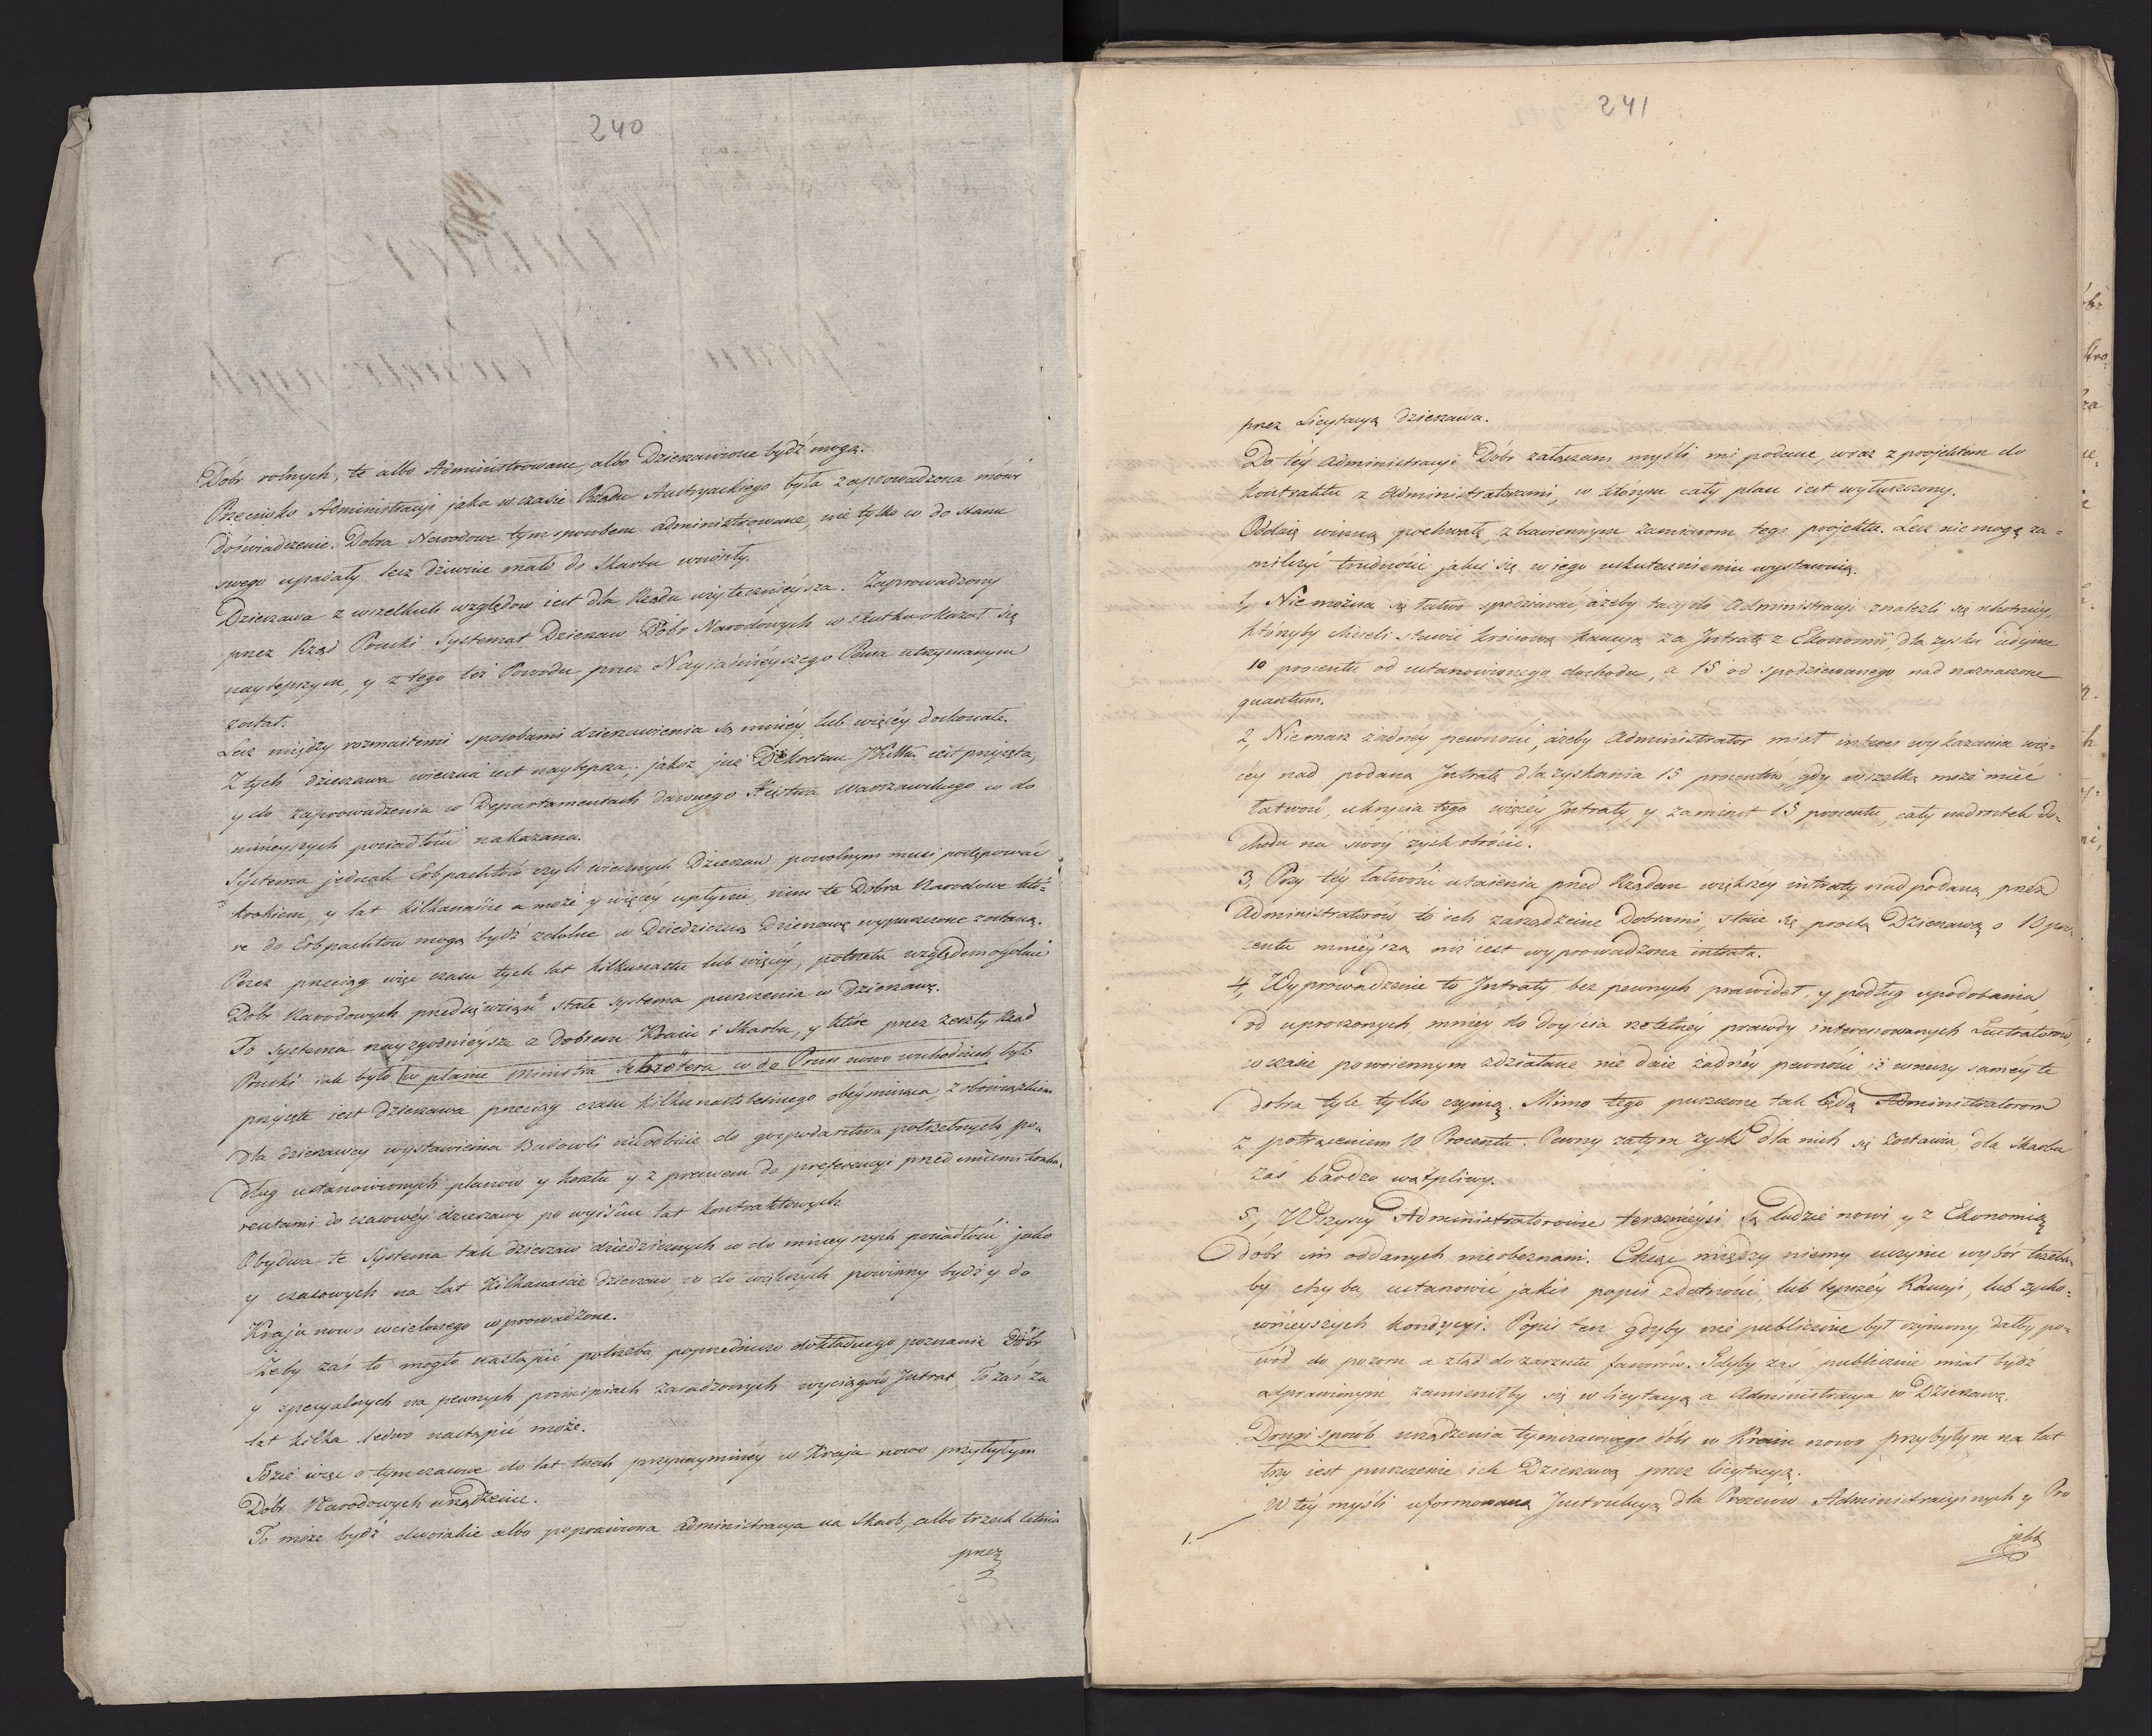 240
Dóbr rolnych, te albo Administrowane, albo Dzierzawione bydź mogą.
Przeciwko Administracyi jaka w czasie Rządu Austryackiego była zaprowadzona mówi
doświadczenie. Dobra Narodowe tym sposobem administrowane, nie tylko co do stanu
swego upadały lecz dziwnie mało do Skarbu wniosły.
Dzierzawa z wszelkich względów iest dla Rządu użytecznieysza. Zaprowadzony
przez Rząd Pruski Systemat Dzierzaw Dóbr Narodowych w skutku okazał się
naylepszym, y z tego też Powodu przez Nayiaśnieyszego Pana utrzymanym
został.
Lecz między rozmaitemi sposobami dzierzawienia są mniéy lub więcéy doskonałe.
Z tych dzierzawa wieczna iest naylepsza; jakoż już Dekretem JKMci iest przyięta,
y do zaprowadzenia w Departamentach dawnego Xięstwa Warszawskiego co do
mnieyszych posiadłości nakazana.
Systema jednak Erbpachtów czyli wiecznych Dzierzaw, powolnym musi postępować
krokiem, y lat kilkanaście a może y więcéy upłynie, nim te Dobra Narodowe któ-
re do Erbpachtów mogą bydź zdolne w Dziedziczną Dzierzawę wypuszczone zostaną.
Przez przeciąg więc czasu tych lat kilkunastu lub więcéy, potrzeba względem ogolnie
Dóbr Narodowych przedsięwziąść stałe systema puszczenia w Dzierzawę.
To systema nayzgodnieysze z dobrem Kraiu i Skarbu, y które przez zeszły Rząd
Pruski iak było w planie Ministra Schrötera co do Prus nowo wschodnich było
przyięte iest dzierzawa przeciąg czasu kilkunastoletniego obeymuiąca, z obowiązkiem
dla dzierzawcy wystawienia Budowli nieodbicie do gospodarstwa potrzebnych, po-
dług ustanowionych planów y kosztu y z prawem do preferencyi przed innemi konku-
rentami do czasowéy dzierzawy po wyiściu lat kontraktowych.
Obydwa te Systema tak dzierzaw dziedzicznych co do mnieyszych posiadłości jako
y czasowych na lat kilkanaście dzierzaw, co do większych powinny bydź y do
Kraju nowo wcielonego wprowadzone.
Żeby zaś to mogło nastąpić potrzeba, poprzedniczo dokładnego poznania Dóbr
y specyalnych na pewnych principiach zasadzonych wyciągów Intrat, To zaś za
lat kilka ledwo nastąpić może.
Idzie więc o tymczasowe do lat trzech przynaymniéy w Kraju nowo przybyłym
Dóbr Narodowych urządzenie.
To może bydź dwoiakie albo poprawiona Administracya na Skarb, albo trzech letnia
przez
241
przez Licytacyą dzierzawa.
Do téy Administracyi Dóbr załączam myśli mi podane, wraz z projektem do
kontraktu z Administratorami, w którym cały plan iest wyłuszczony.
Oddaię winną pochwałę zbawiennym zamiarom tego projektu. Lecz nie mogę za-
milczyć trudności jakie się w iego uskutecznieniu wystawuią.
1, Nie można się łatwo spodziewać, ażeby tacy do Administracyi znaleźli się ochotnicy,
któryby chcieli stawić krociową kaucyą za Intratę z Ekonomii, dla zysku iedynie
10 procentu od ustanowionego dochodu, a 15 od spodziewanego nad naznaczone
quantum.
2, Niemasz żadnéy pewności, ażeby Administrator miał interes wykazania wię-
céy nad podaną Intratę dla zyskania 15 procentów, gdy wszelką może mieć
łatwość, ukrycia tego więcéy Intraty, y zamiast 15 procentu, cały nadrostek do-
chodu na swóy zysk obrócić.
3, Przy téy łatwości utaienia przed Rządem większéy intraty nad podaną, przez
Administratorów, to ich zarządzenie Dobrami, staie się prostą Dzierzawą o 10 pro-
centu mnieyszą niż iest wyprowadzona intrata.
4, Wyprowadzenie to Intraty bez pewnych prawideł, y podług upodobania
od uproszonych, mniéy do doyścia rzetelnéy prawdy interesowanych Lustratorów,
w czasie powoiennym zdziałane nie daie żadnéy pewności iż w naszy saméy te
dobra tyle tylko czynią. Mimo tego puszczone tak będą Administratorom
z potrąceniem 10 Procentu. Pewny zatym zysk dla nich się zostawia, dla Skarbu
zaś bardzo wątpliwy.
5, Wszyscy Administratorowie teraznieysi są ludzie nowi, y z Ekonomią
dóbr im oddanych nieobeznani. Chcąc między niemy uczynić wybór trzeba-
by chyba ustanowić jakiś popis zdatności, lub lepszéy Kaucyi, lub zysko-
wnieyszych kondycyi. Popis ten gdyby nie publicznie był czyniony, dałby po-
wód do pozoru a ztąd do zarzutu faworów. Gdyby zaś publicznie miał bydź
odprawionym, zamieniłby się w licytacyą a Administracya w Dzierzawę.
Drugi sposób urządzenia tymczasowego dóbr w Kraiu nowo przybyłym na lat
trzy iest puszczenie ich Dzierzawą przez licytacyą.
1. W téy myśli uformowaną Instrukcyą dla Prezesów Administracyinych y Pro
jekt